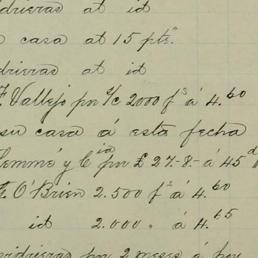 drieras at id
casa at 15 pts.
drieras at id
F. Vallejo pr s/c 2000 fs á 4.60
su casa á esta fecha
Lemmé y Cia pr £ 27-8- á 45 d
F. O'Brien 2.500 fs á 4.60
id 2.000 " á 4.65
vidrieras por 2 meses á